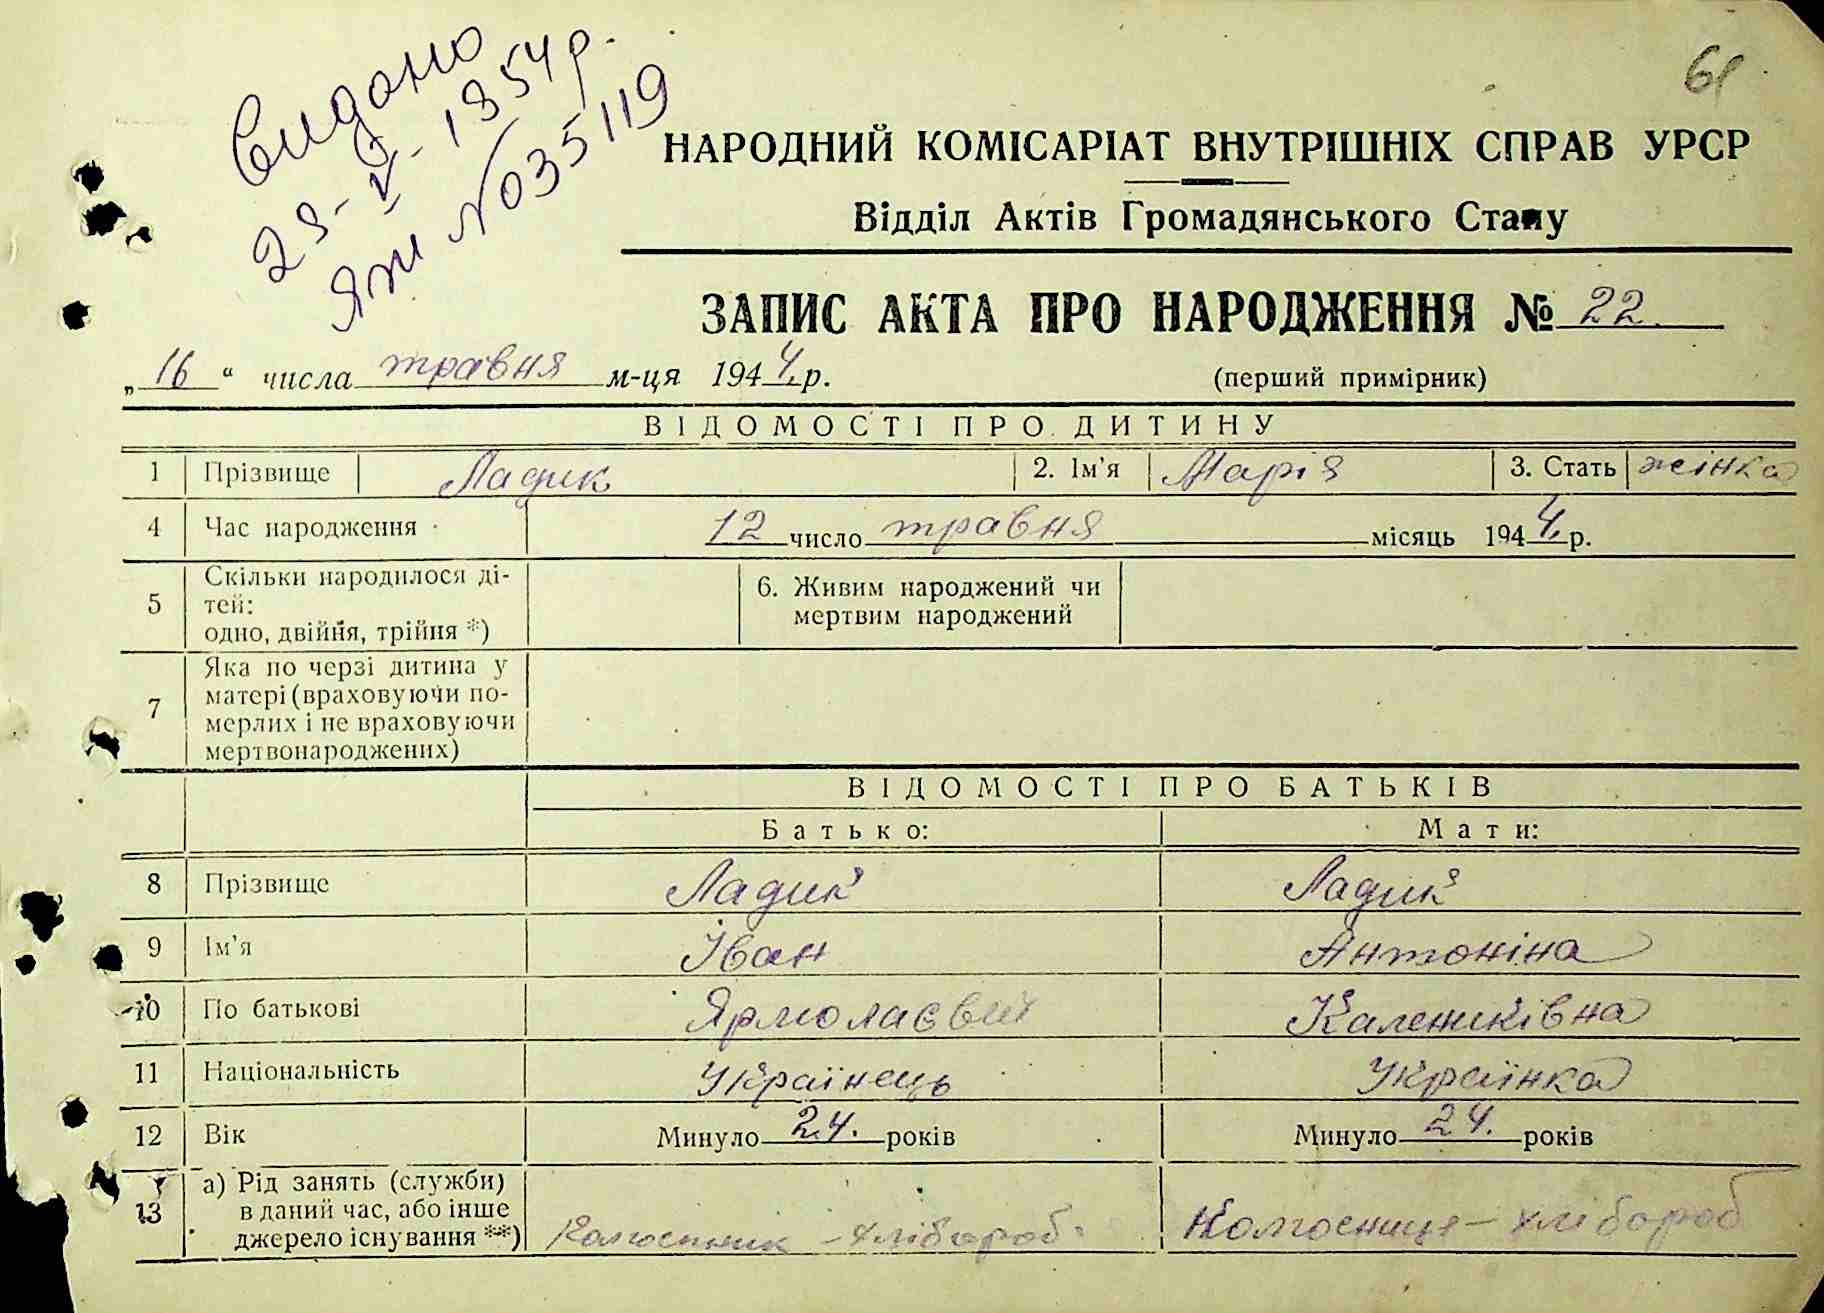 Видано
29-V-1954р.
ЯЖ №035119
61
НАРОДНИЙ КОМІСАРІАТ ВНУТРІШНІХ СПРАВ УРСР
Відділ Актів Громадянського Стану
ЗАПИС АКТА ПРО НАРОДЖЕННЯ № 22.
„16“ числа травня м-ця 1944.р.
(перший примірник)
ВІДОМОСТІ ПРО ДИТИНУ
1 Прізвище Ладик 2. Ім'я Марія 3. Стать жінка
4 Час народження 12 число травня місяць 1944.р.
5 Скільки народилося ді-
тей:
одно, двійня, трійня *)
6. Живим народжений чи
мертвим народжений
7 Яка по черзі дитина у
матері (враховуючи по-
мерлих і не враховуючи
мертвонароджених)
ВІДОМОСТІ ПРО БАТЬКІВ
Батько: Мати:
8 Прізвище Ладик Ладик
9 Ім'я Іван Антоніна
10 По батькові Ярмолаєвич Калениківна
11 Національність Українець Українка
12 Вік Минуло 24. років Минуло 24. років
13 а) Рід занять (служби)
в даний час, або інше
джерело існування **)
Колгоспник - хлібороб
Колгоспниця - хлібороб